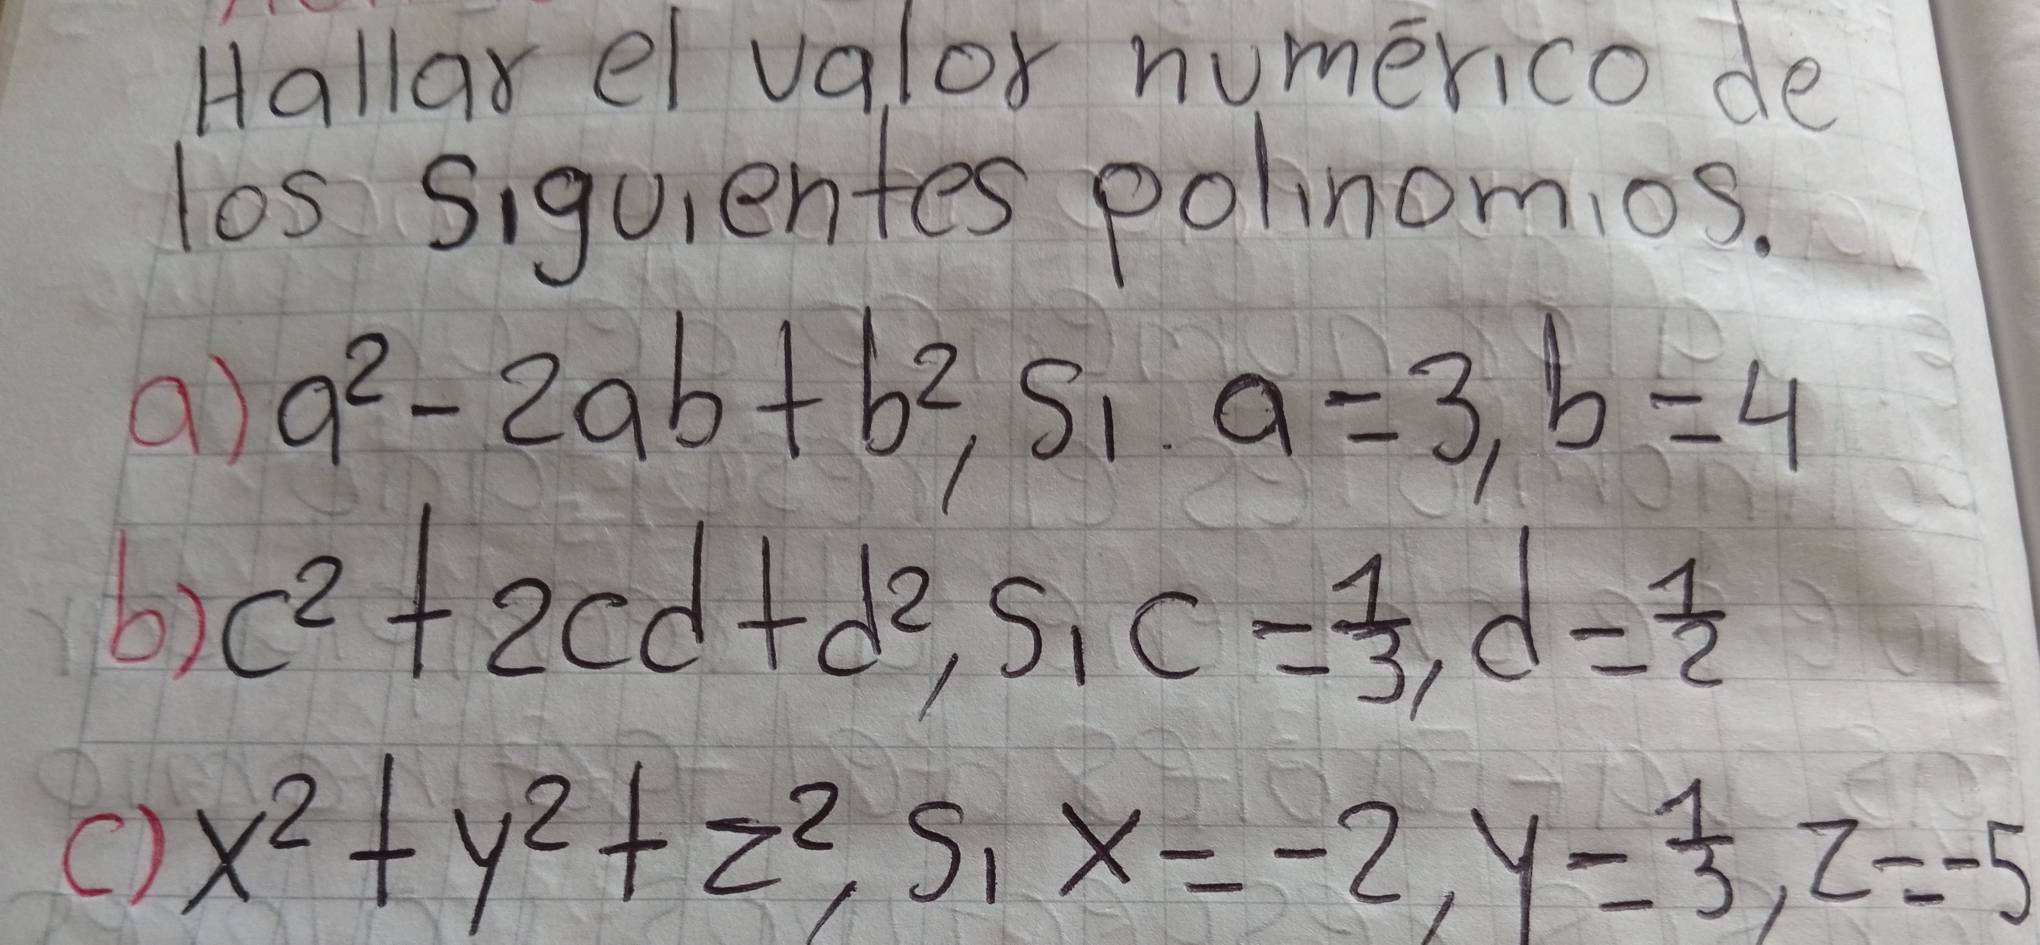 Hallar el valor numérico de
los siguientes polinomios.
a) a² - 2ab + b², si a = 3, b = 4
b) c² + 2cd + d², si c = 1/3, d = 1/2
c) x² + y² + z², si x = -2, y = 1/3, z = -5